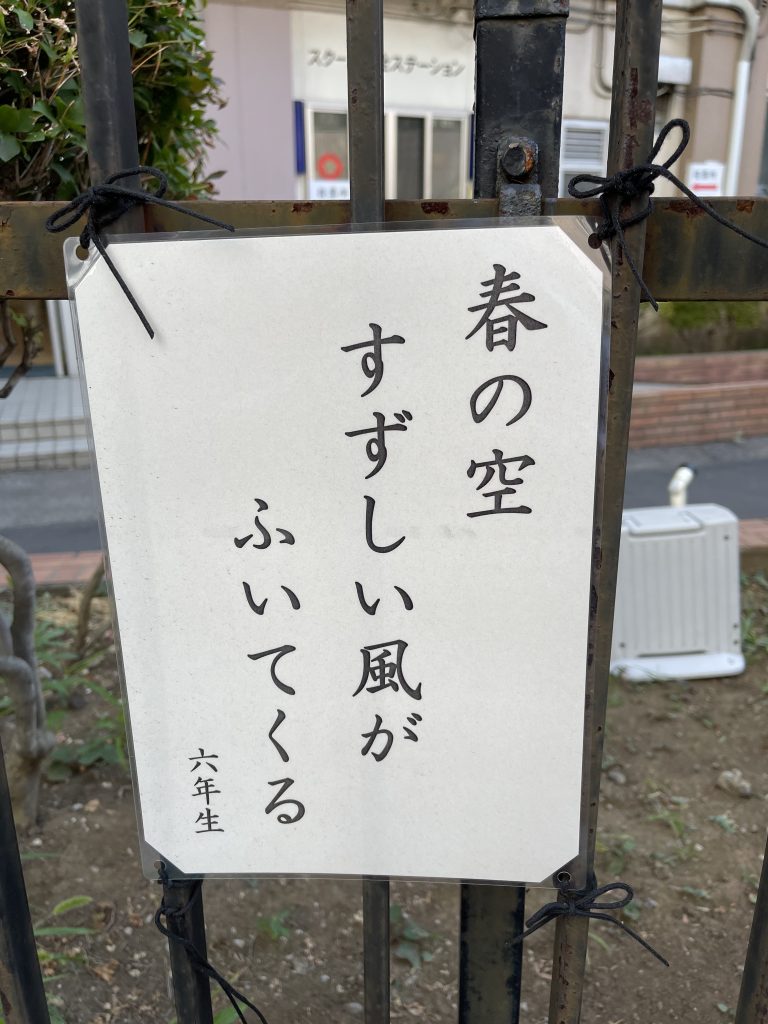 春の空
すずしい風が
ふいてくる
六年生
ステーション